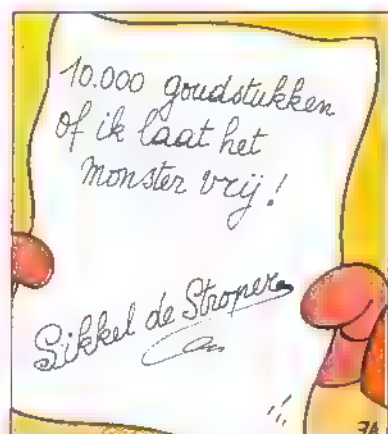 10.000 goudstukken
of ik laat het
monster vrij!
Sikkel de Stroper
7A